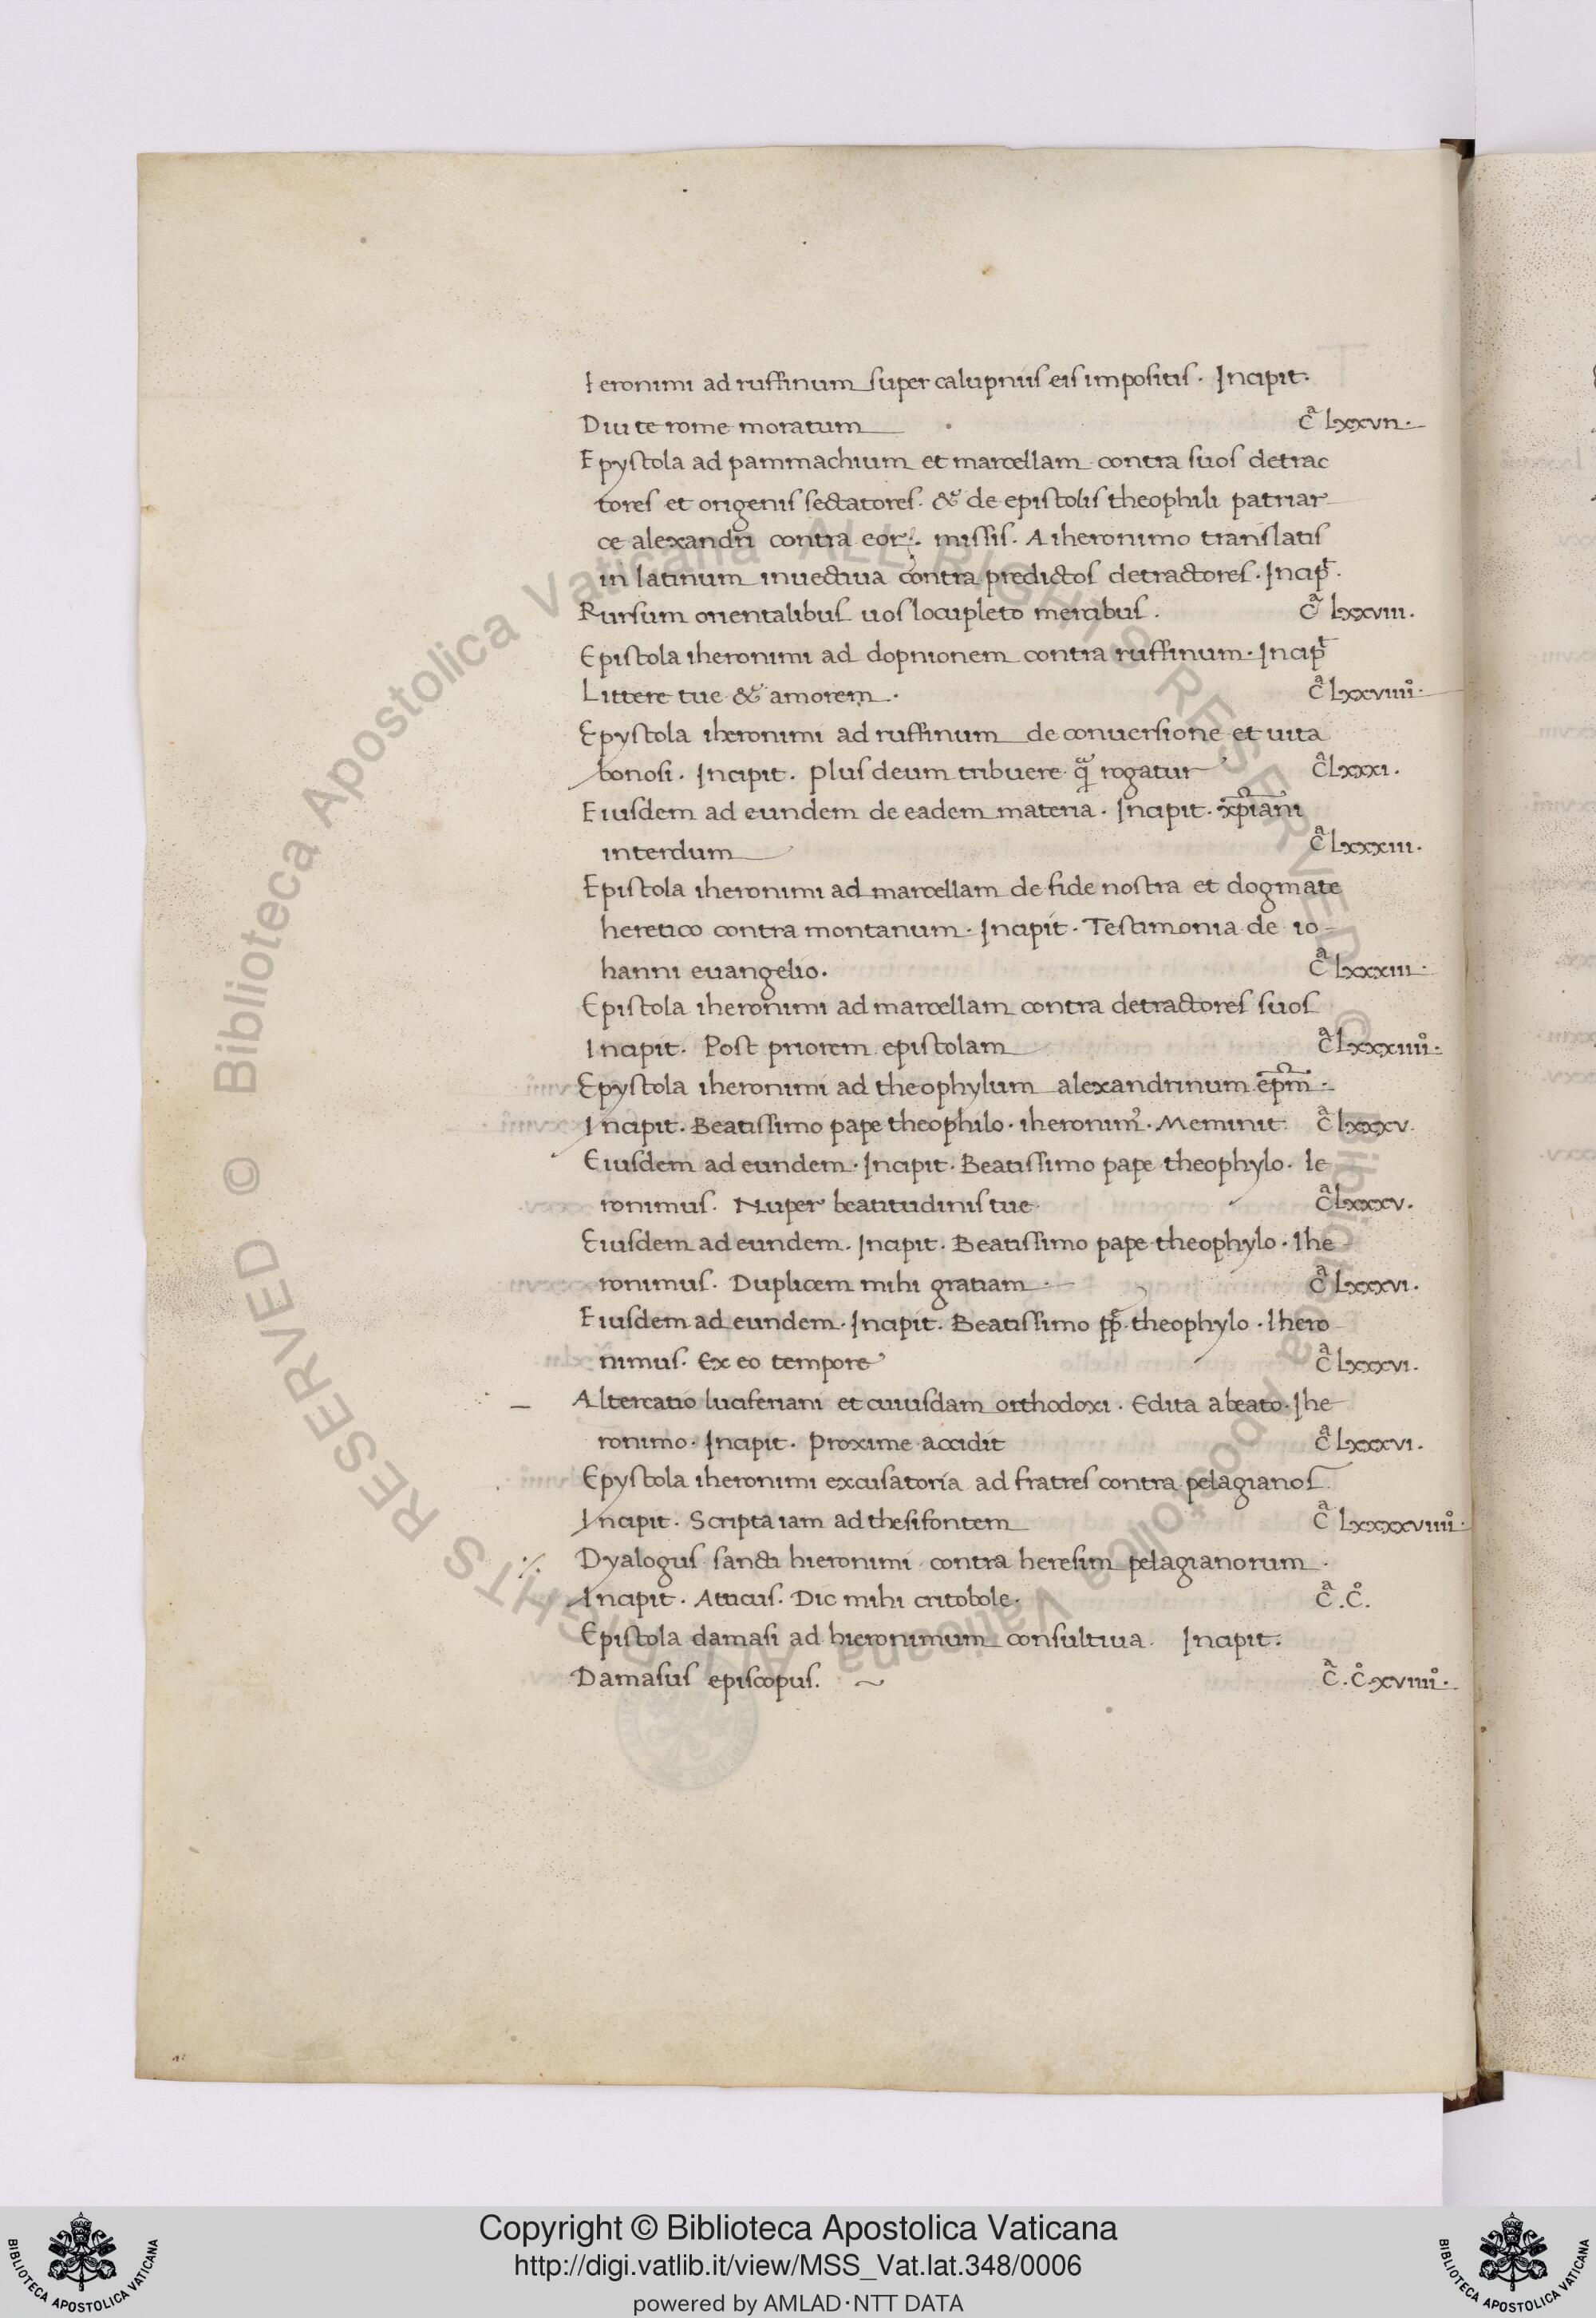 Ieronimi ad ruffinum super calupniis eis impositis. Incipit.
Diu te rome moratum cͣ lxxvii.
Epystola ad pammachium et marcellam contra suos detrac
tores et origenis sectatores. & de epistolis theophili patriar
ce alexandri contra eorꝝ. missis. A iheronimo translatis
in latinum inuectiua contra predictos detractores. Incip̄t.
Rursum orientalibus uos locupleto mercibus. cͣ lxxviii.
Epistola iheronimi ad dopnionem contra ruffinum. Incip̄t
Littere tue & amorem. cͣ lxxviiiiͦ.
Epystola iheronimi ad ruffinum de conuersione et uita
bonosi. Incipit. Plus deum tribuere qͣ̄ rogatur cͣ lxxxi.
Eiusdem ad eundem de eadem materia. Incipit. xp̄iani
interdum cͣ lxxxiii.
Epistola iheronimi ad marcellam de fide nostra et dogmate
heretico contra montanum. Incipit. Testimonia de io-
hanni euangelio. cͣ lxxxiii.
Epistola iheronimi ad marcellam contra detractores suos
Incipit. Post priorem epistolam cͣ lxxxiiiiͦ.
Epystola iheronimi ad theophylum alexandrinum ep̄m.
Incipit. Beatissimo pape theophilo. iheronimꝰ. Meminit cͣ lxxxv.
Eiusdem ad eundem. Incipit. Beatissimo pape theophylo. Ie
ronimus. Nuper beatitudinis tue cͣ lxxxv.
Eiusdem ad eundem. Incipit. Beatissimo pape theophylo. Ihe
ronimus. Duplicem mihi gratiam cͣ lxxxvi.
Eiusdem ad eundem. Incipit. Beatissimo pp̄. theophylo. Ihero
nimus. Ex eo tempore cͣ lxxxvi.
Altercatio luciferiani et cuiusdam orthodoxi. Edita a beato. Ihe
ronimo. Incipit. Proxime accidit cͣ lxxxvi.
Epystola iheronimi excusatoria ad fratres contra pelagianos
Incipit. Scripta iam ad thesifontem cͣ lxxxxviiiiͦ.
Dyalogus sancti hieronimi contra heresim pelagianorum.
Incipit. Atticus. Dic mihi critobole. cͣ. cͦ.
Epistola damasi ad hieronimum consultiua. Incipit.
Damasus episcopus. cͣ. cͦ. xviiiiͦ.
© Biblioteca Apostolica Vaticana ALL RIGHTS RESERVED © Biblioteca Apostolica Vaticana ALL RIGHTS RESERVED
BIBLIOTECA APOSTOLICA VATICANA
Copyright © Biblioteca Apostolica Vaticana
http://digi.vatlib.it/view/MSS_Vat.lat.348/0006
powered by AMLAD·NTT DATA
BIBLIOTECA APOSTOLICA VATICANA